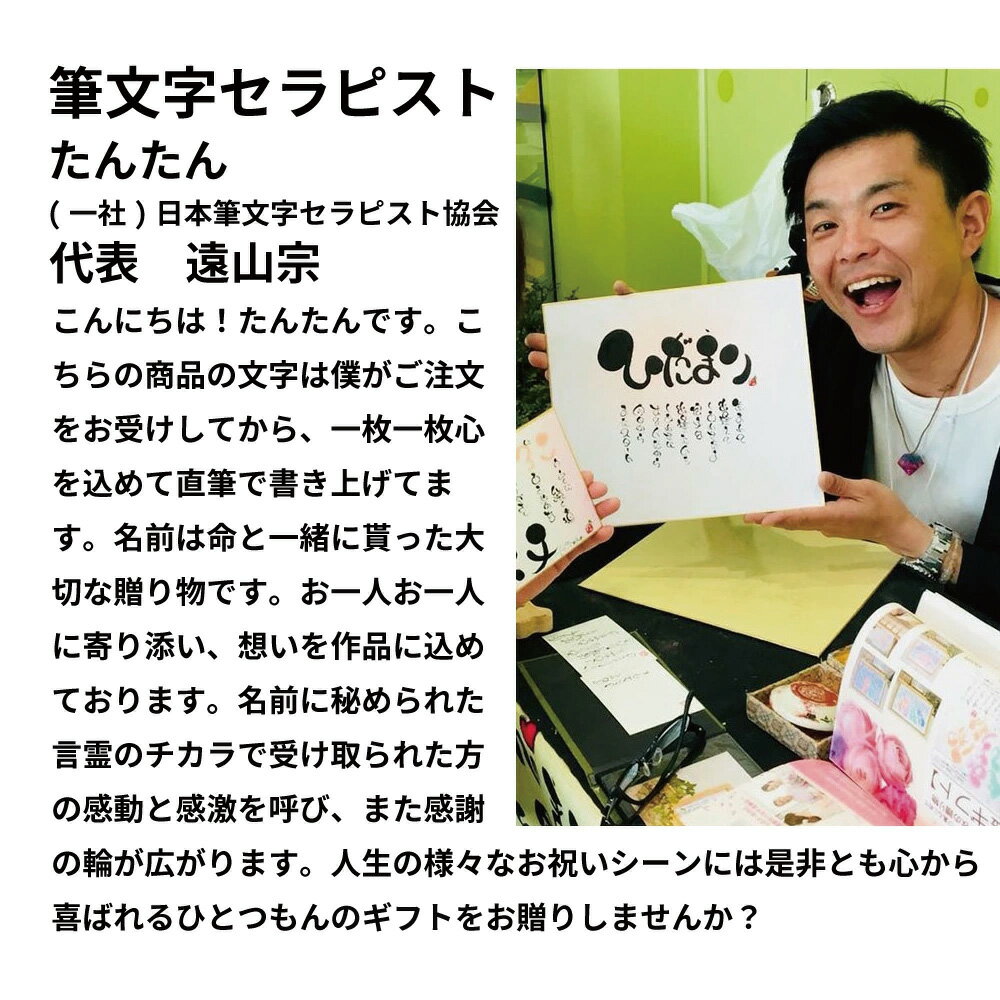 筆文字セラピスト
たんたん
(一社)日本筆文字セラピスト協会
代表　遠山宗
こんにちは！たんたんです。こ
ちらの商品の文字は僕がご注文
をお受けしてから、一枚一枚心
を込めて直筆で書き上げてま
す。名前は命と一緒に貰った大
切な贈り物です。お一人お一人
に寄り添い、想いを作品に込め
ております。名前に秘められた
言霊のチカラで受け取られた方
の感動と感激を呼び、また感謝
の輪が広がります。人生の様々なお祝いシーンには是非とも心から
喜ばれるひとつもんのギフトをお贈りしませんか？
ひだまり